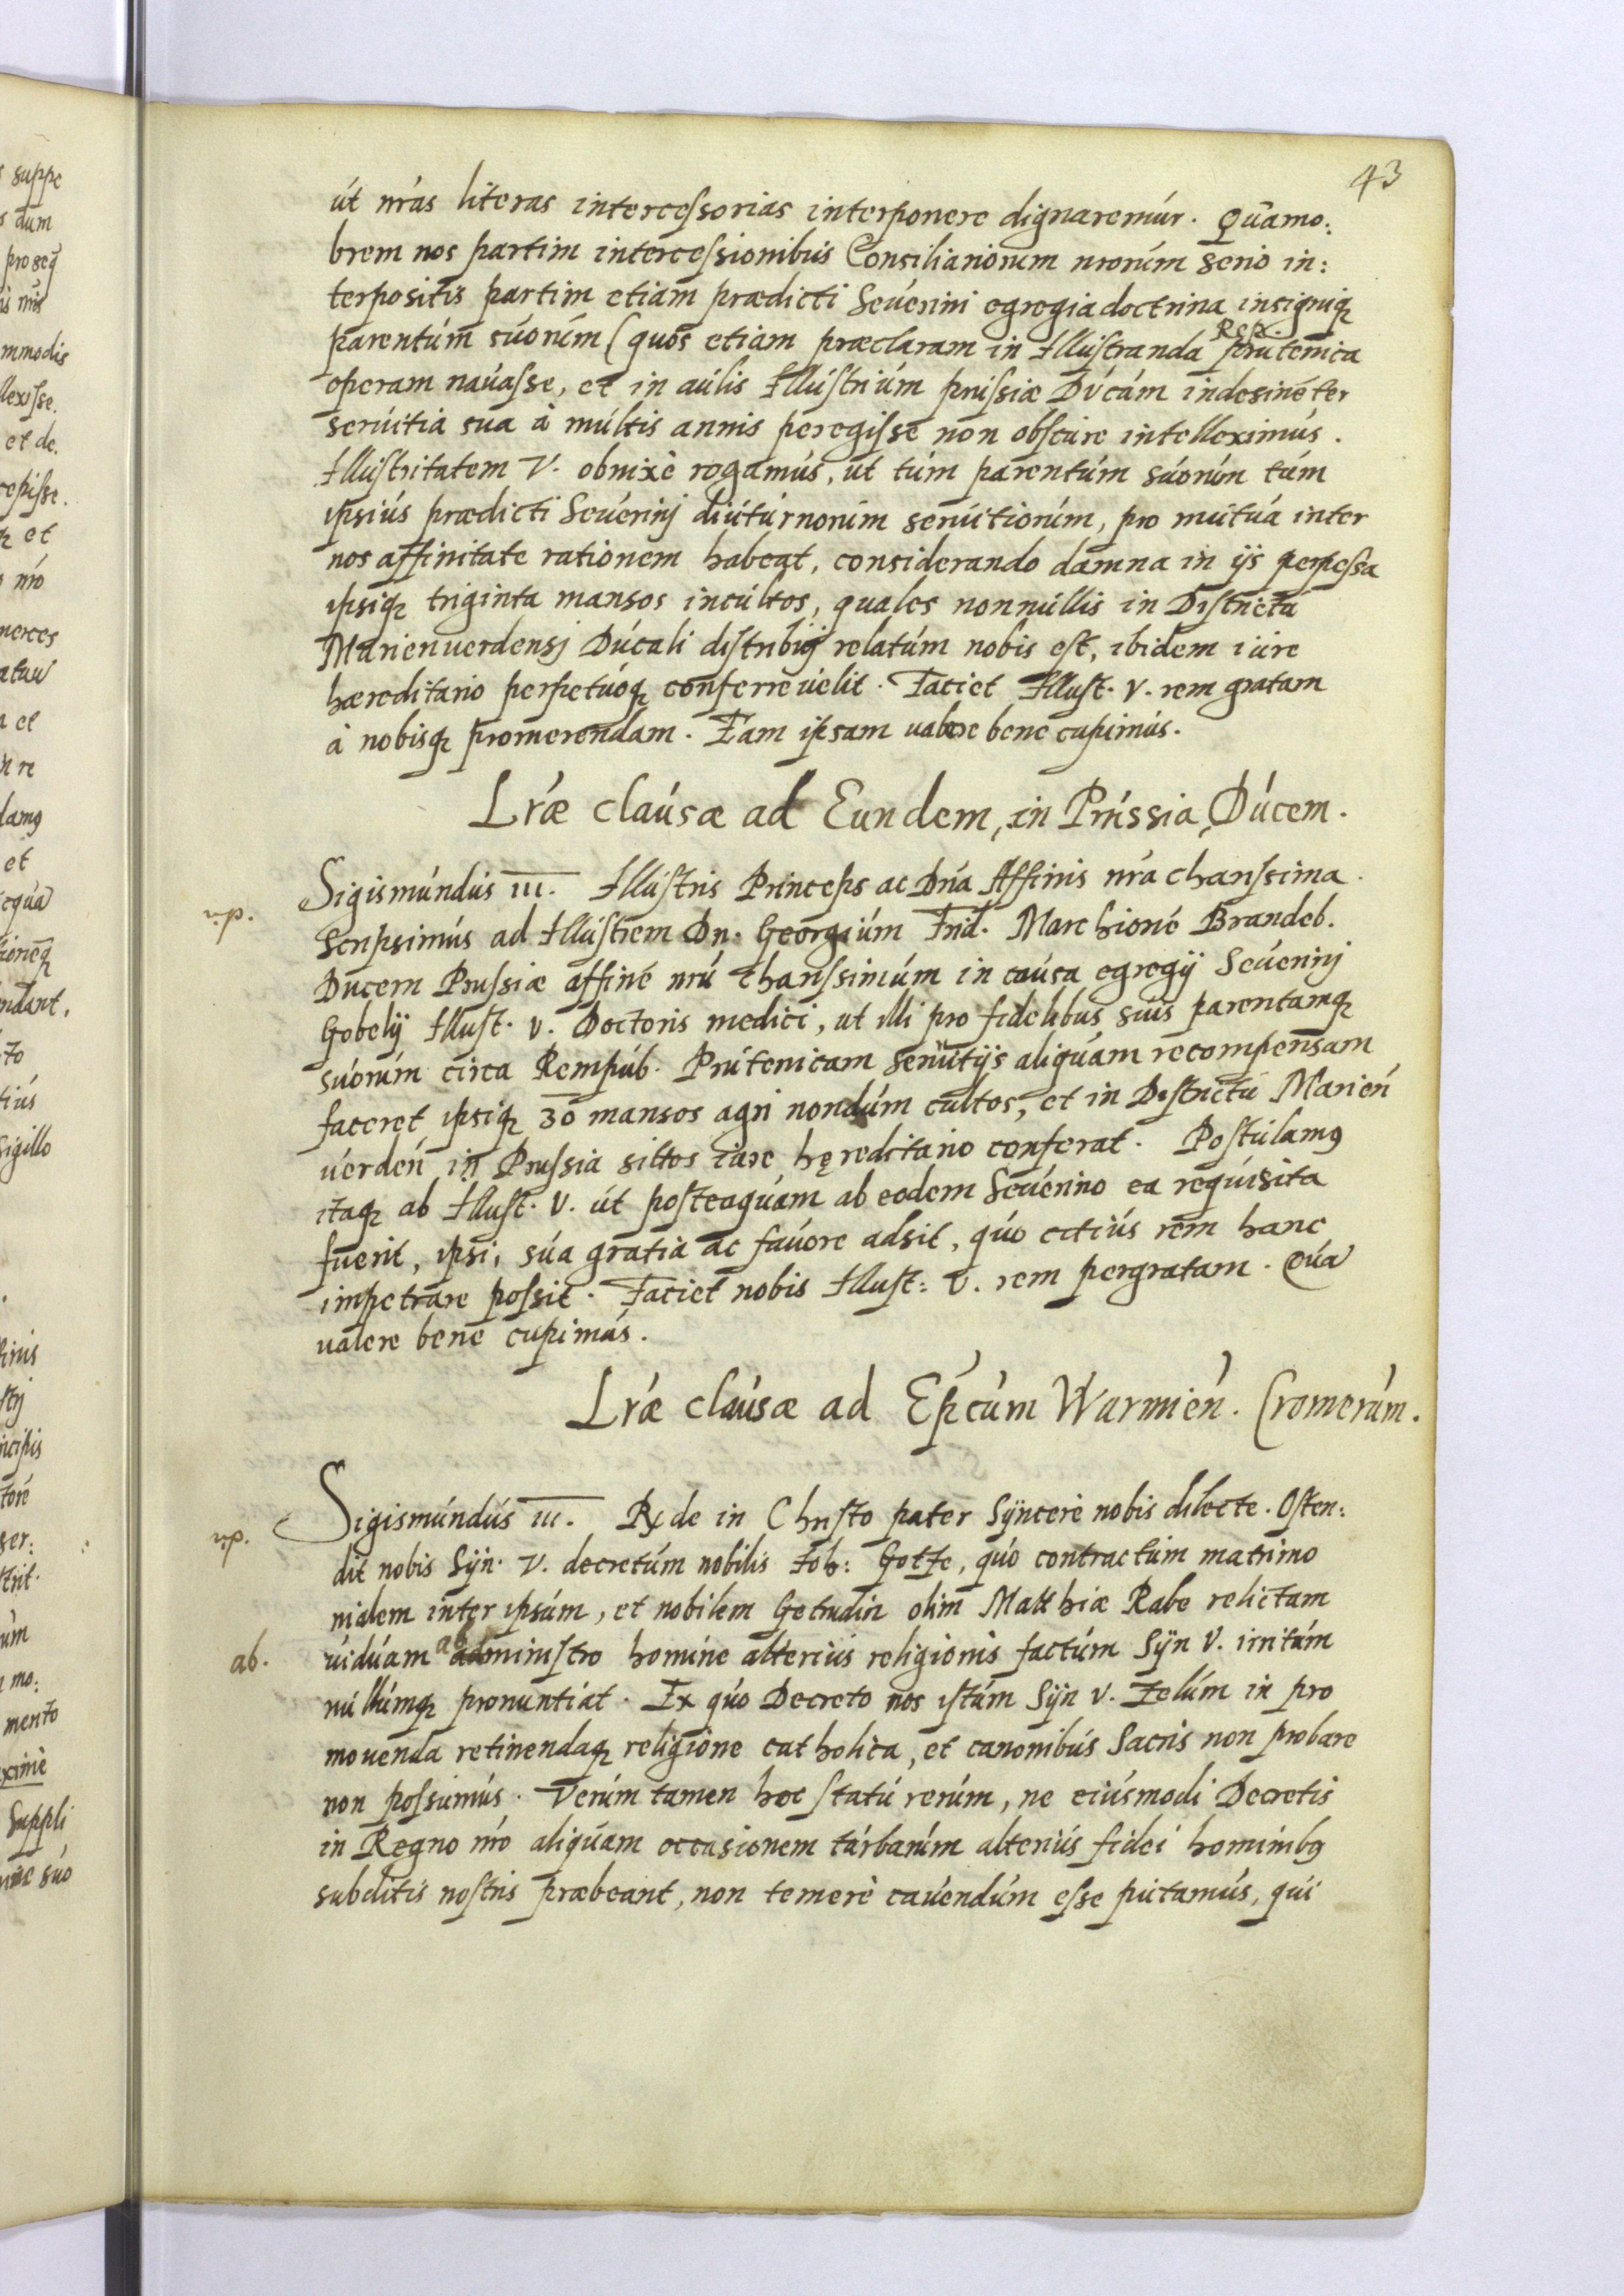 43
út nr̃as literas intercessorias interponere dignaremúr. Quamo:
brem nos partim intercessionibus Consiliariorum nrorúm serio in:
terpositis partim etiam prædicti Seúerini egregia doctrina insigniq;
parentúm súorúm (quos etiam præclaram in Illustranda Rep. prutenica
operam naúasse, et in aúlis Illústriúm prussiæ Dúcúm indesinēter
serúitia sua à múltis annis peregisse non obscure intelleximús.
Illustritatem V. obnixè rogamús, út túm parentúm súorúm túm
ipsiús prædicti Seúerinj diútúrnorúm serúitiorúm, pro mutúa inter
nos affinitate rationem habeat, considerando damna in ijs perpessa
ipsiq; triginta mansos incúltos, quales nonnúllis in Districtú
Marienuerdensj Dúcali distribúj relatúm nobis est, ibidem iúre
hæreditario perpetúoq; conferre uelit. Faciet Illust. V. rem gratam
à nobisq; promerendam. Eam ipsam ualere bene cupimús.
Lr̃æ claúsæ ad Eundem, in Prússia, Dúcem.
up. Sigismúndús III. Illústris Princeps ac Dn̄a Affinis nr̃a charissima.
Scripsimús ad Illústrem Dn. Georgiúm Frid. Marchionē Brandeb.
Ducem Prussiæ affinē nrú charissimúm in caúsa egregij Seúerinj
Gobelij Illust. V. Doctoris medici, ut illi pro fidelibus suis parentúmq;
súorúm circa Rempúb. Prútenicam serúitijs aliqúam recompensam
faceret ipsiq; 30 mansos agri nondúm cúltos, et in Districtú Marien̄
úerden̄ in Prussia sittos iúre hęreditario conferat. Postúlamꝰ
itaq; ab Illust. V. út posteaqúam ab eodem Seúerino ea reqúisita
fuerit, ipsi, súa gratia ac fáuore adsit, qúo citiús rem hanc
impetrare possit. Faciet nobis Illust: V. rem pergratam. Qúa
ualere bene cupimús.
Lr̃æ claúsæ ad Ep̃cúm Warmien̄. Cromerúm.
up. Sigismúndús III. Rx̃de in Christo pater Sÿncerè nobis dilecte. Osten:
dit nobis Sÿn. V. decretúm nobilis Job: Gotze, qúo contractúm matrimo
nialem inter ipsúm, et nobilem Getrudin olim Matthiæ Rabe relictam
ab. úidúam ab ministro homine alteriús religionis factúm Sÿn V. irritúm
núllúmq; pronuntiat. Ex qúo Decreto nos istúm Sÿn V. Zelúm in pro
mouenda retinendaq; religione catholica, et canonibús Sacris non probare
non possumús. Verúm tamen hoc statú rerúm, ne eiúsmodi Decretis
in Regno nr̃o aliqúam occasionem túrbarúm alteriús fidei hominibꝰ
subditis nostris præbeant, non temerè caúendúm esse pútamús, qúi